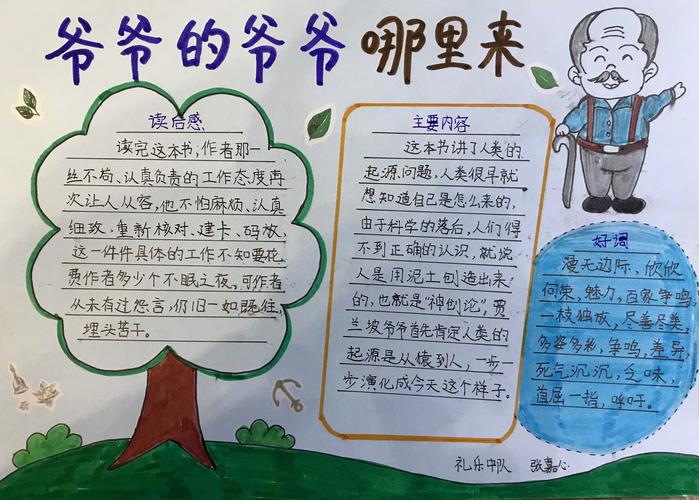 爷爷的爷爷哪里来
读后感
读完这本书,作者那一
丝不苟、认真负责的工作态度再
次让人从容,他不怕麻烦、认真
细致、重新核对、建卡、码放,
这一件件具体的工作不知要花
费作者多少个不眠之夜。可作者
从未有过怨言,仍旧一如既往,
埋头苦干。
主要内容
这本书讲了人类的
起源问题,人类很早就
想知道自己是怎么来的,
由于科学的落后,人们得
不到正确的认识,就说
人是用泥土刨造出来
的,也就是“神创论”,贾
兰坡爷爷首先肯定人类的
起源是从猿到人,一步
步演化成今天这个样子。
好词
漫无边际,欣欣
向荣,魅力,百家争鸣
一枝独放,尽善尽美
多姿多彩,争鸣,差异
死气沉沉,乏味,
首屈一指,呼吁。
礼乐中队 张嘉心